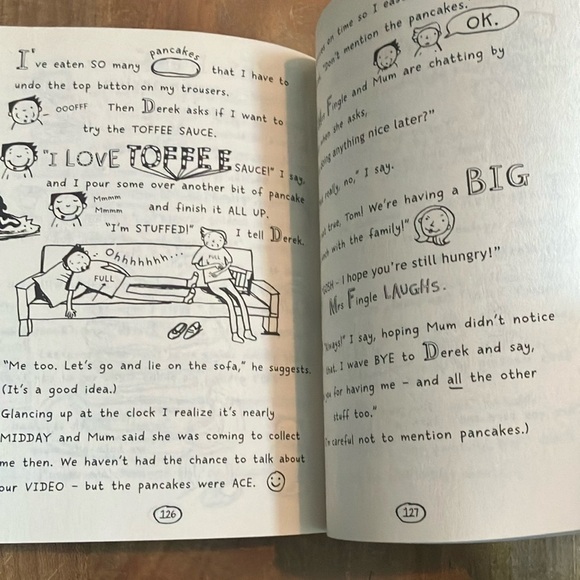 pancakes
I've eaten SO many that I have to
undo the top button on my trousers.
OOOFF Then Derek asks if I want to
try the TOFFEE SAUCE.
"I LOVE TOFFEE SAUCE!" I say,
and I pour some over another bit of pancake
Mmmm
Mmmm
and finish it ALL UP.
"I'm STUFFED!" I tell Derek.
Ohhhhhhh...
FULL
FULL
"Me too. Let's go and lie on the sofa," he suggests.
(It's a good idea.)
Glancing up at the clock I realize it's nearly
MIDDAY and Mum said she was coming to collect
me then. We haven't had the chance to talk about
our VIDEO - but the pancakes were ACE.
126
on time so I
"Don't mention the pancakes.
OK.
Fingle and Mum are chatting by
when she asks,
anything nice later?"
really, no," I say.
true, Tom! We're having a BIG
with the family!"
- I hope you're still hungry!"
Mrs Fingle LAUGHS.
I say, hoping Mum didn't notice
I wave BYE to Derek and say,
for having me - and all the other
stuff too."
careful not to mention pancakes.)
127